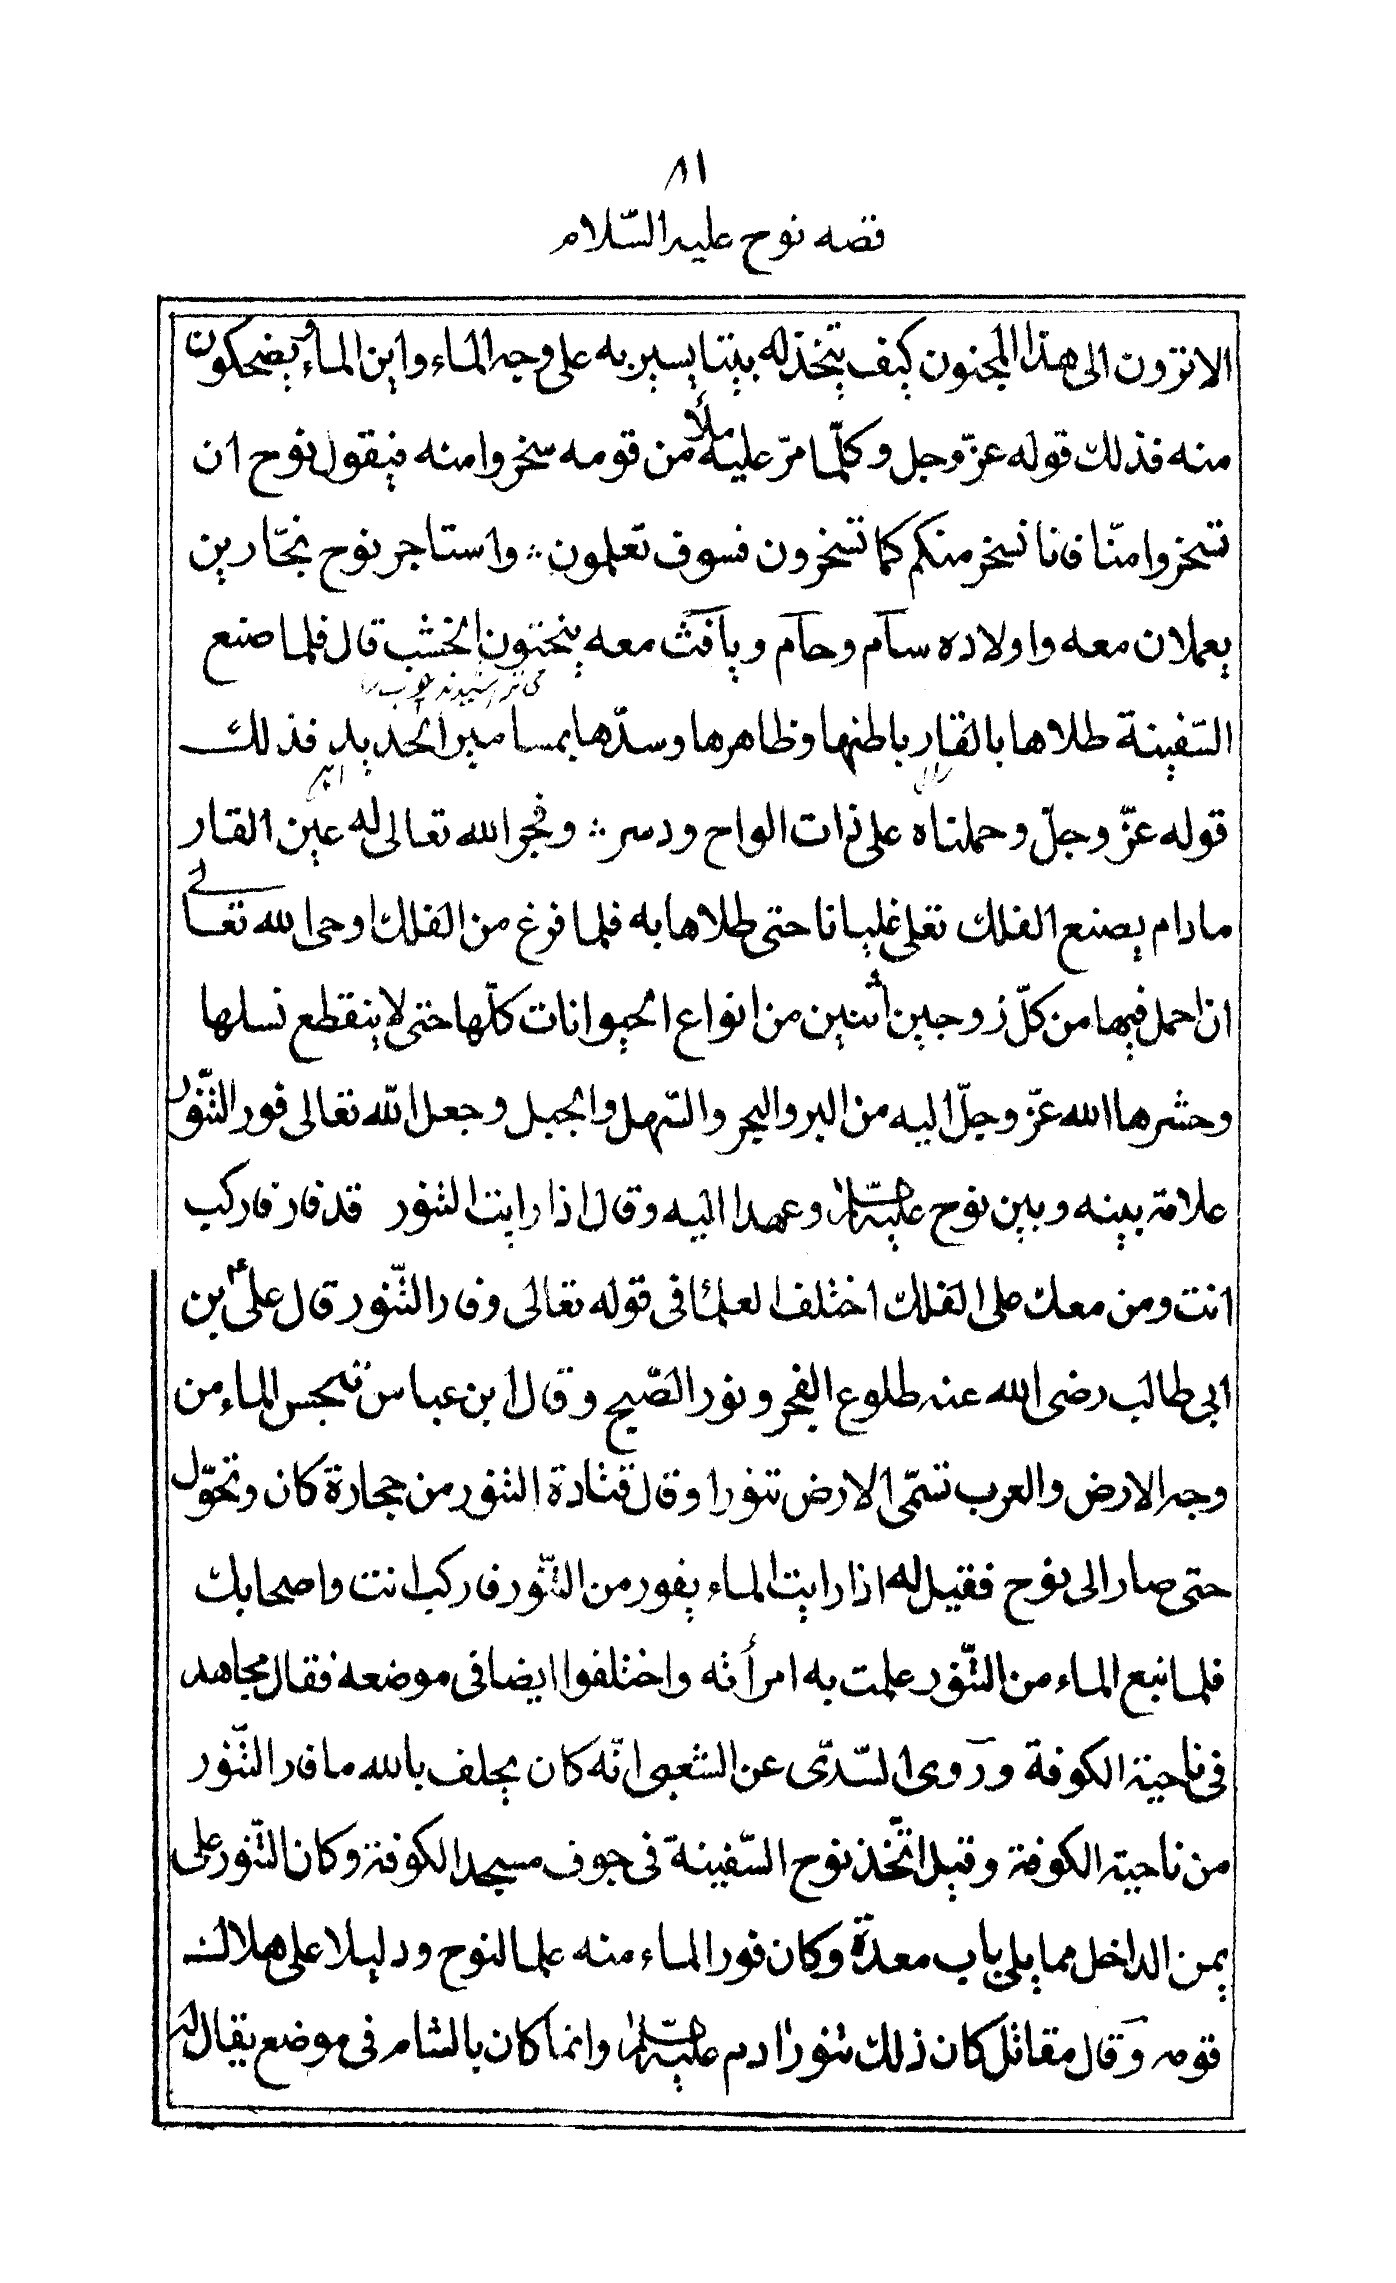 ٨١
قصه نوح عليه السّلام
الا ترون الى هذا المجنون كيف يتخذ له بيتا يسير به على وجه الماء واين الماء ويضحكون
منه فذلك قوله عزّ وجل وكلّما مرّ عليه ملأ من قومه سخروا منه فيقول نوح ان
تسخروا منّا فانا نسخر منكم كما تسخرون فسوف تعلمون ∴ واستاجر نوح نجّارين
يعملان معه واولاده سآم وحآم ويآفث معه ينحتون الخشب قال فلما صنع
السّفينة طلاها بالقار باطنها وظاهرها وسدّها بمسامير الحديد فذلك
قوله عزّ وجلّ وحملناه على ذات الواح ودسر ∴ وفجر الله تعالى له عين القار
مادام يصنع الفلك تغلى غليانا حتى طلاها به فلما فرغ من الفلك اوحى الله تعالى
ان احمل فيها من كلّ زوجين اثنين من انواع الحيوانات كلّها حتى لا ينقطع نسلها
وحشرها الله عزّ وجلّ اليه من البر والبحر والسّهل والجبل وجعل الله تعالى فور التّنّور
علامة بينه وبين نوح عليه السّلام وعهدا اليه وقال اذا رايت التنور قد فار فاركب
انت ومن معك على الفلك اختلف العلما فى قوله تعالى وفار التّنور قال على بن
ابى طالب رضى الله عنه طلوع الفجر ونور الصّبح وقال ابن عباس تبجس الماء من
وجه الارض والعرب تسمّى الارض تنورا وقال قتادة التنور من حجارة كان وتحوّل
حتى صار الى نوح فقيل له اذا رايت الماء يفور من التّنّور فاركب انت واصحابك
فلما نبع الماء من التّنّور علمت به امرأته واختلفوا ايضا فى موضعه فقال مجاهد
فى ناحية الكوفة وروى السّدّى عن الشعبى انّه كان يحلف بالله ما فار التّنّور
من ناحية الكوفة وقيل اتّخذ نوح السّفينة فى جوف مسجد الكوفة وكان التّنور على
يمين الداخل مما يلى باب معدة وكان فور الماء منه علما لنوح ودليلا على هلاك
قومه وقال مقاتل كان ذلك تنور ادم عليه السّلام وانما كان بالشام فى موضع يقال له